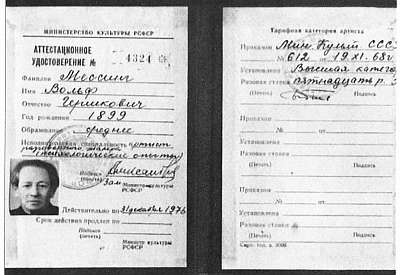 МИНИСТЕРСТВО КУЛЬТУРЫ РСФСР
АТТЕСТАЦИОННОЕ
УДОСТОВЕРЕНИЕ № 4324
Фамилия Мессинг
Имя Вольф
Отчество Гершикович
Год рождения 1899
Образование среднее
Исполнительская специальность артист
разговорного жанра
(психологические опыты)
Подпись
Зам. Министр культуры
РСФСР
Действительно по 31 декабря 1976
Срок действия продлен по
Подпись
(печать)
Министр культуры
РСФСР
Тарификация категория артиста
Приказом Мин. Культ СССР
№ 612 от 19.XI.63г.
Установлена Высшая катего
Разовая ставка пятнадцать р.
(Печать) Подпись
Приказом
№ от
Установлена
Разовая ставка
(Печать) Подпись
Приказом
№ от
Установлена
Разовая ставка
(Печать) Подпись
Приказом
№ от
Установлена
Разовая ставка
(Печать) Подпись